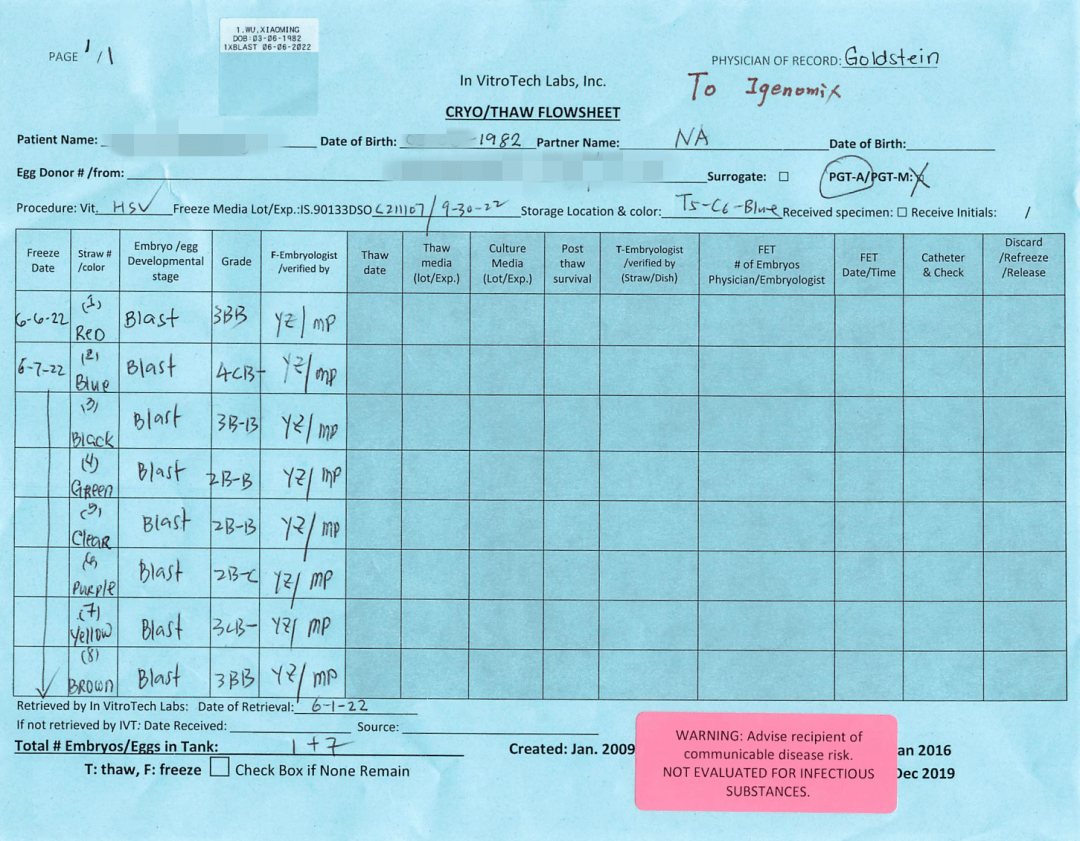 1.WU,XIAOMING
DOB:03-06-1982
1XBLAST 06-06-2022
PAGE 1/1
PHYSICIAN OF RECORD: Goldstein
In VitroTech Labs, Inc.
To Igenomix
CRYO/THAW FLOWSHEET
Patient Name: Date of Birth: -1982 Partner Name: NA Date of Birth:
Egg Donor # /from: Surrogate: ☐ PGT-A/PGT-M:
Procedure: Vit. HSV Freeze Media Lot/Exp.:IS.90133DSO C211107 / 9-30-22 Storage Location & color: T5-C6-Blue Received specimen: ☐ Receive Initials: /
Freeze Date Straw # /color Embryo /egg Developmental stage Grade F-Embryologist /verified by Thaw date Thaw media (lot/Exp.) Culture Media (Lot/Exp.) Post thaw survival T-Embryologist /verified by (Straw/Dish) FET # of Embryos Physician/Embryologist FET Date/Time Catheter & Check Discard /Refreeze /Release
6-6-22 (1) Red Blast 3BB YZ/MP
6-7-22 (2) Blue Blast 4CB- YZ/MP
(3) Black Blast 3B-B YZ/MP
(4) Green Blast 2B-B YZ/MP
(5) Clear Blast 2B-B YZ/MP
(6) Purple Blast 2B-C YZ/MP
(7) Yellow Blast 3CB- YZ/MP
(8) Brown Blast 3BB YZ/MP
Retrieved by In VitroTech Labs: Date of Retrieval: 6-1-22
If not retrieved by IVT: Date Received: Source:
Total # Embryos/Eggs in Tank: 1+7
Created: Jan. 2009
an 2016
T: thaw, F: freeze ☐ Check Box if None Remain
Dec 2019
WARNING: Advise recipient of
communicable disease risk.
NOT EVALUATED FOR INFECTIOUS
SUBSTANCES.